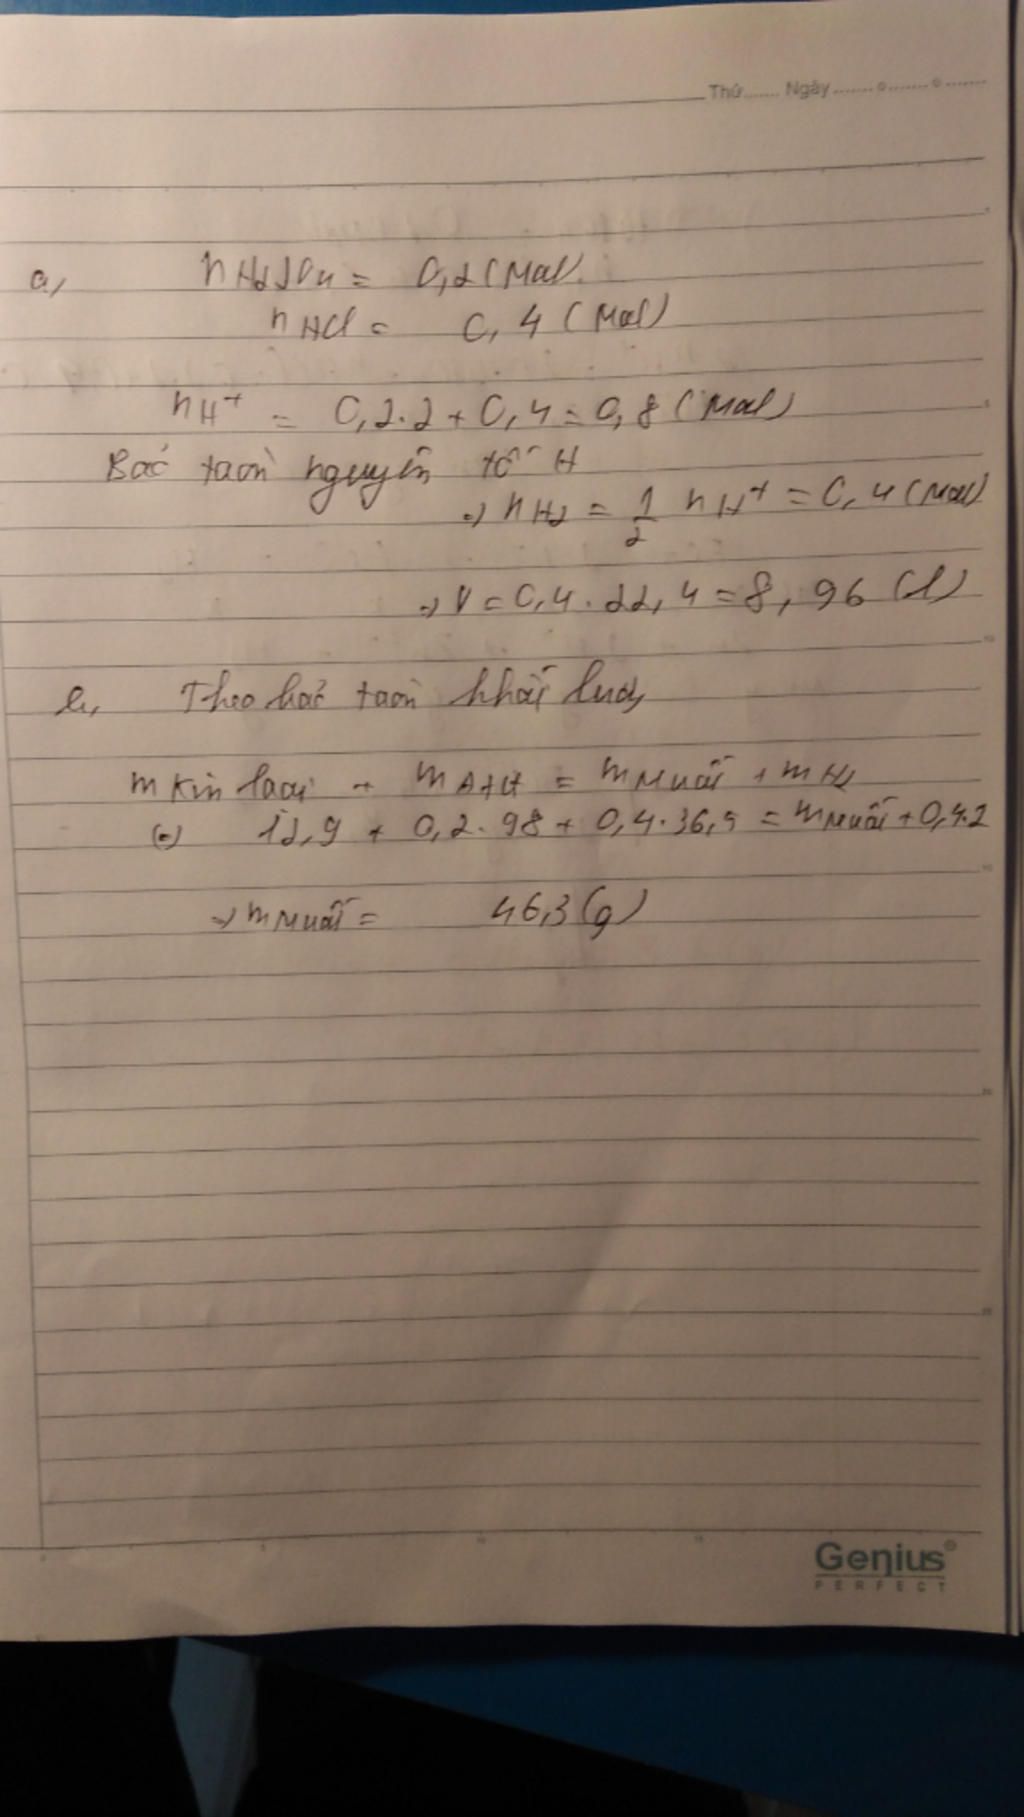 Thứ....... Ngày ........o........o........
a, nH2SO4 = 0,2 (mol)
nHCl = 0,4 (mol)
nH+ = 0,2.2 + 0,4 = 0,8 (mol)
Bảo toàn nguyên tố H
=> nH2 = 1/2 nH+ = 0,4 (mol)
=> V = 0,4.22,4 = 8,96 (l)
b, Theo bảo toàn khối lượng
m kim loại + m Axit = m muối + mH2
(=) 12,9 + 0,2.98 + 0,4.36,5 = m muối + 0,4.2
=> m muối = 46,3 (g)
Genius
PERFECT